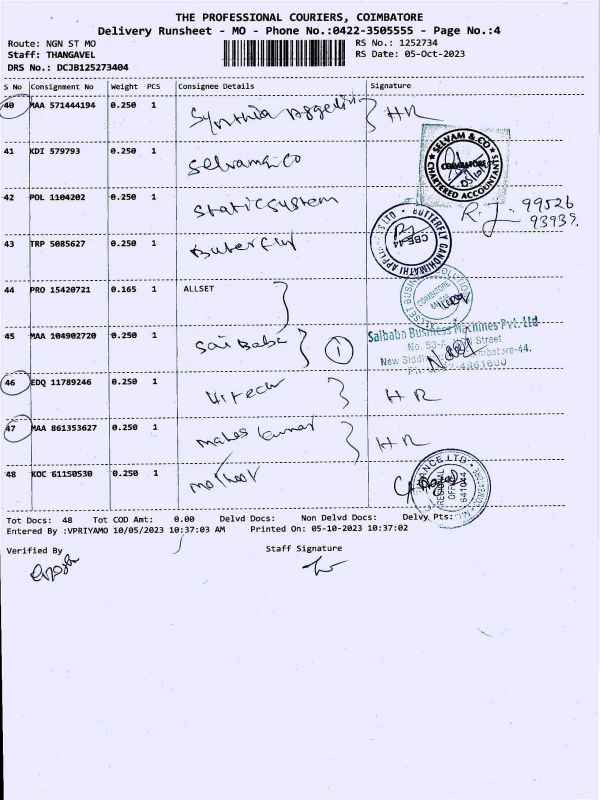 THE PROFESSIONAL COURIERS, COIMBATORE
Delivery Runsheet - MO - Phone No.:0422-3505555 - Page No.:4
Route: NGN ST MO RS No.: 1252734
Staff: THANGAVEL RS Date: 05-Oct-2023
DRS No.: DCJB125273404
S No Consignment No Weight PCS Consignee Details Signature
40 MAA 571444194 0.250 1 Synthia HR
41 KDI 579793 0.250 1 Selvam & Co
SELVAM & CO
CHARTERED ACCOUNTANTS
COIMBATORE
42 POL 1104202 0.250 1 Static System R.J. 99526
93939
43 TRP 5085627 0.250 1 Buterfly
BUTTERFLY GANDHIMATHI APPLIANCES LTD
CBE-44
44 PRO 15420721 0.165 1 ALLSET
ALLSET BUSINESS SOLUTION
COIMBATORE
45 MAA 104902720 0.250 1 Sai Baba 1
Saibaba Business Machines Pvt. Ltd
Street
New
46 EDQ 11789246 0.250 1 Hitech HR
47 MAA 861353627 0.250 1 Mahes Kumar HR
48 KOC 61150530 0.250 1
REGIONAL
OFFICE
641044
Tot Docs: 48 Tot COD Amt: 0.00 Delvd Docs: Non Delvd Docs: Delvy Pts:
Entered By :VPRIYAMO 10/05/2023 10:37:03 AM Printed On: 05-10-2023 10:37:02
Verified By Staff Signature